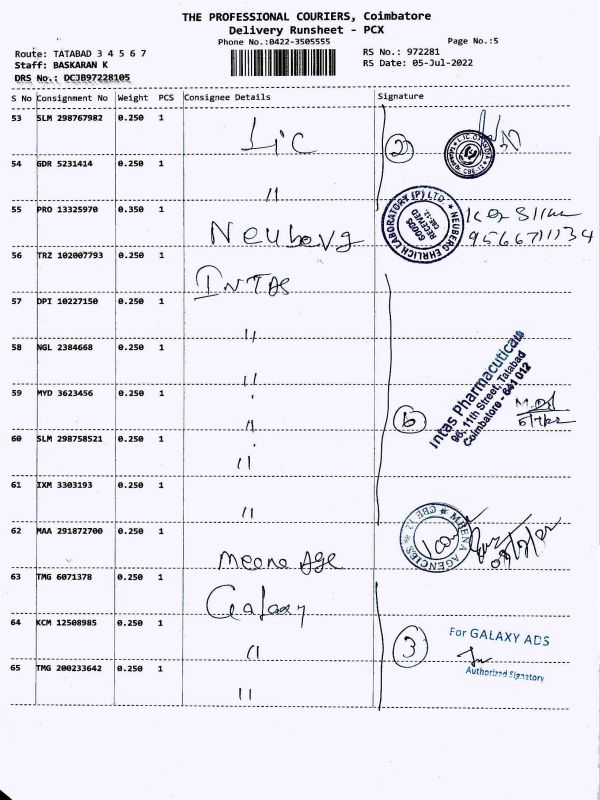 THE PROFESSIONAL COURIERS, Coimbatore
Delivery Runsheet - PCX
Phone No.:0422-3505555
Page No.:5
Route: TATABAD 3 4 5 6 7
RS No.: 972281
Staff: BASKARAN K
RS Date: 05-Jul-2022
DRS No.: DCJB97228105
S No Consignment No Weight PCS Consignee Details Signature
53 SLM 298767982 0.250 1 Lic 2
54 GDR 5231414 0.250 1 11
55 PRO 13325970 0.350 1 Neuberg
NEUBERG EHRLICH LABORATORY (P) LTD
GOODS RECEIVED
9566711134
56 TRZ 102007793 0.250 1 INTAS
57 DPI 10227150 0.250 1 11
58 NGL 2384668 0.250 1 11
59 MYD 3623456 0.250 1 11
60 SLM 298758521 0.250 1 11 6
Intas Pharmacuticals
96, 11th Street, Tatabad
Coimbatore - 641 012
61 IXM 3303193 0.250 1 11
62 MAA 291872700 0.250 1 Meena Age
MEENA AGENCIES * CBE 12 *
63 TMG 6071378 0.250 1 Galaxy
64 KCM 12508985 0.250 1 11 3
For GALAXY ADS
Authorized Signatory
65 TMG 200233642 0.250 1 11